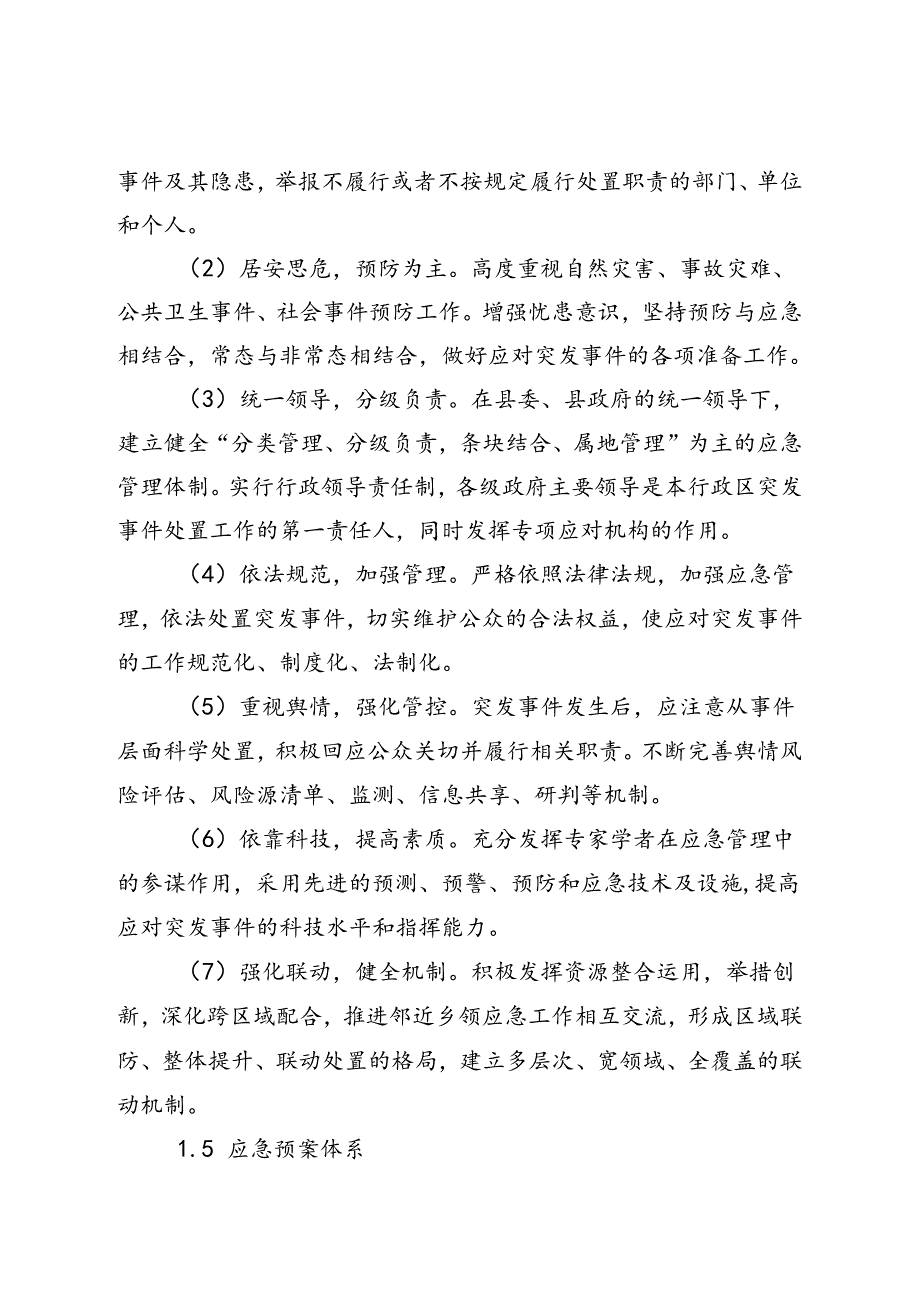 事件及其隐患，举报不履行或者不按规定履行处置职责的部门、单位
和个人。
（2）居安思危，预防为主。高度重视自然灾害、事故灾难、
公共卫生事件、社会事件预防工作。增强忧患意识，坚持预防与应急
相结合，常态与非常态相结合，做好应对突发事件的各项准备工作。
（3）统一领导，分级负责。在县委、县政府的统一领导下，
建立健全“分类管理、分级负责，条块结合、属地管理”为主的应急
管理体制。实行行政领导责任制，各级政府主要领导是本行政区突发
事件处置工作的第一责任人，同时发挥专项应对机构的作用。
（4）依法规范，加强管理。严格依照法律法规，加强应急管
理，依法处置突发事件，切实维护公众的合法权益，使应对突发事件
的工作规范化、制度化、法制化。
（5）重视舆情，强化管控。突发事件发生后，应注意从事件
层面科学处置，积极回应公众关切并履行相关职责。不断完善舆情风
险评估、风险源清单、监测、信息共享、研判等机制。
（6）依靠科技，提高素质。充分发挥专家学者在应急管理中
的参谋作用，采用先进的预测、预警、预防和应急技术及设施,提高
应对突发事件的科技水平和指挥能力。
（7）强化联动，健全机制。积极发挥资源整合运用，举措创
新，深化跨区域配合，推进邻近乡领应急工作相互交流，形成区域联
防、整体提升、联动处置的格局，建立多层次、宽领域、全覆盖的联
动机制。
1.5 应急预案体系